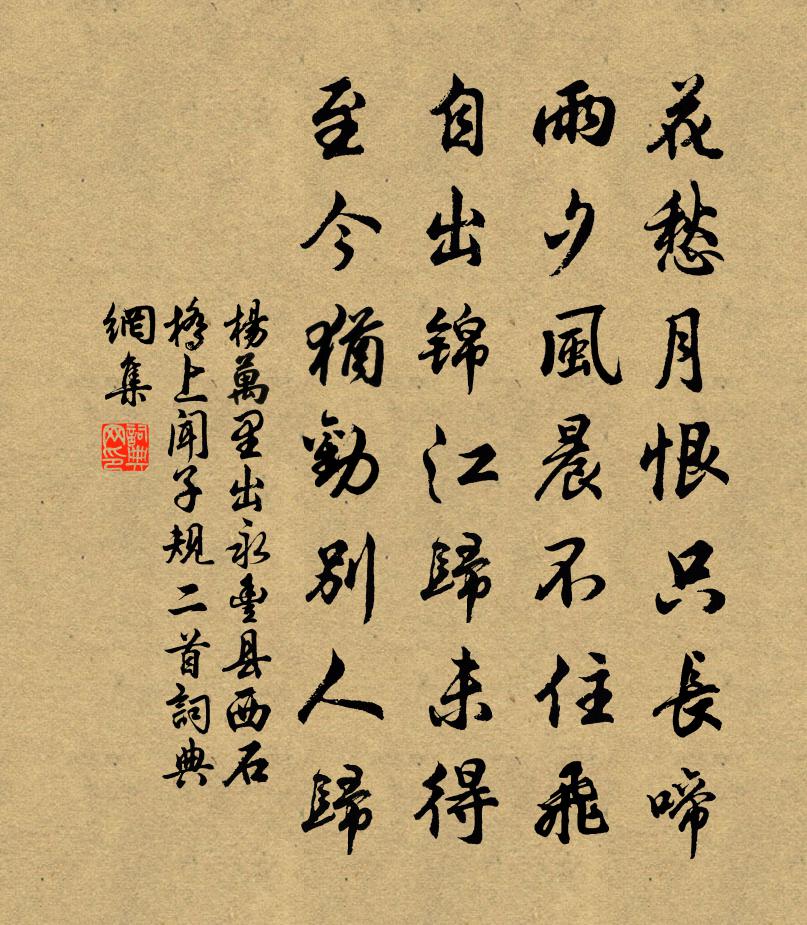 花愁月恨只長啼
雨夕風晨不住飛
自出錦江歸未得
至今猶勸別人歸
楊萬里出永豐县西石
橋上聞子規二首詞典
網集
詞典
网印